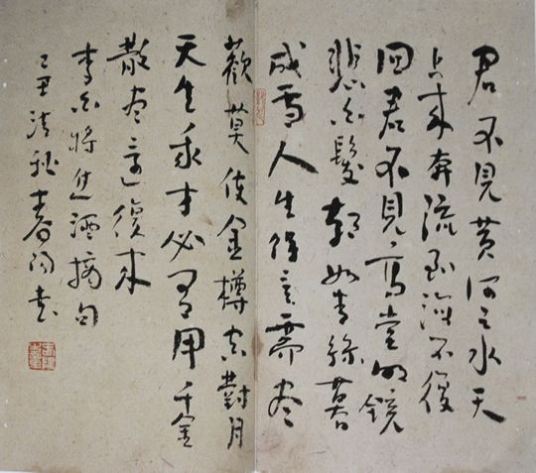 君不見黃河之水天
上来奔流到海不復
回君不見高堂明鏡
悲白髮朝如青絲暮
成雪人生得意需尽
歡莫使金樽空對月
天生我才必有用千金
散尽還復来
李白將進酒摘句
己丑清秋春書